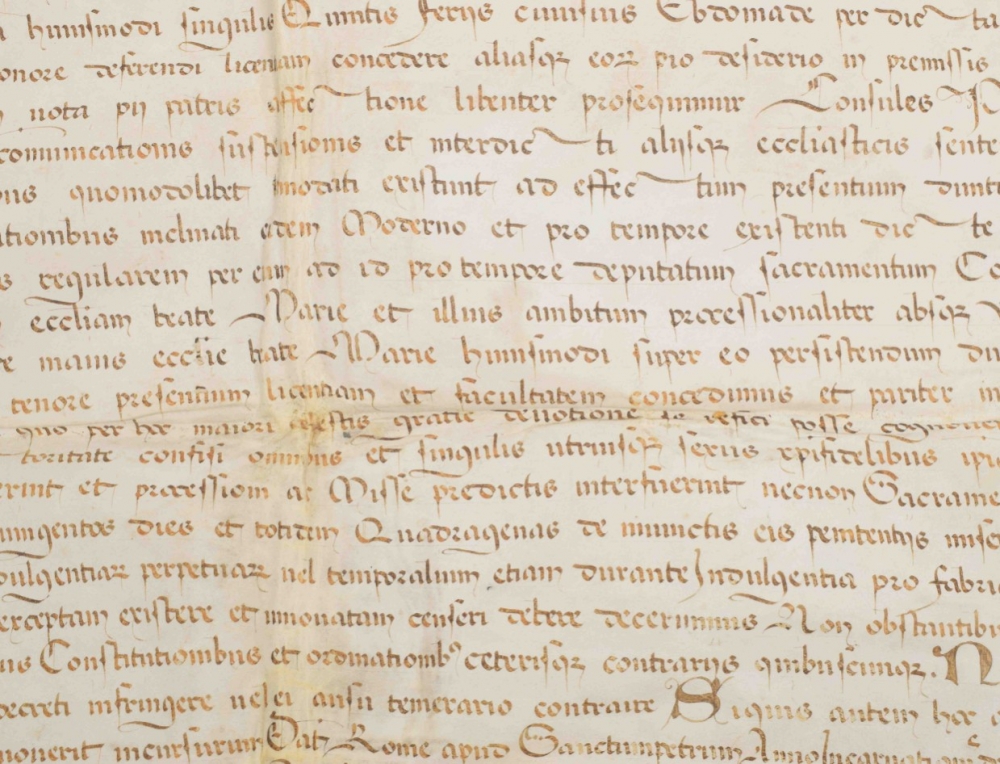 huiusmodi singulis Quintis ferijs cuiusuis Ebdomade per dic ta
onore deferendi licentiam concedere aliasqꝫ eoꝝ pio desiderio in premissis
nota pij patris affec tione libenter prosequimur Consules
comunicationis suspensionis et interdic ti alijsqꝫ eccliasticis sente
quomodolibet innodati existunt ad effec tum presentium dunt
ationibus inclinati eidem Moderno et pro tempore existenti dic te
s regularem per eum ad id pro tempore deputatum sacramentum
eccliam beate Marie et illius ambitum processionaliter absqꝫ
maius ecclie beate Marie huiusmodi super eo persistendum du
tenore presentium licentiam et facultatem concedimus et pariter in
quo per hoc maiori celestis gratie deuotione refici posse
toritate confisi omnibus et singulis utriusqꝫ sexus xpifidelibus ipi
erint et processioni ac Misse predictis interfuerint necnon Sacrame
ningentos dies et totidem Quadragenas de iniunctis eis penitentijs mise
dulgentiaꝝ perpetuaꝝ uel temporalium etiam durante Indulgentia pro fabri
exceptam existere et innouatam censeri debere decernimus Non obstantibu
us Constitutionibus et ordinationibꝰ ceterisqꝫ contrarijs quibuscunqꝫ. N
decreti infringere uel ei ausu temerario contraire Siquis autem hoc
nouerit incursurum Dat Rome apud Sanctumpetrum Anno Incarnati